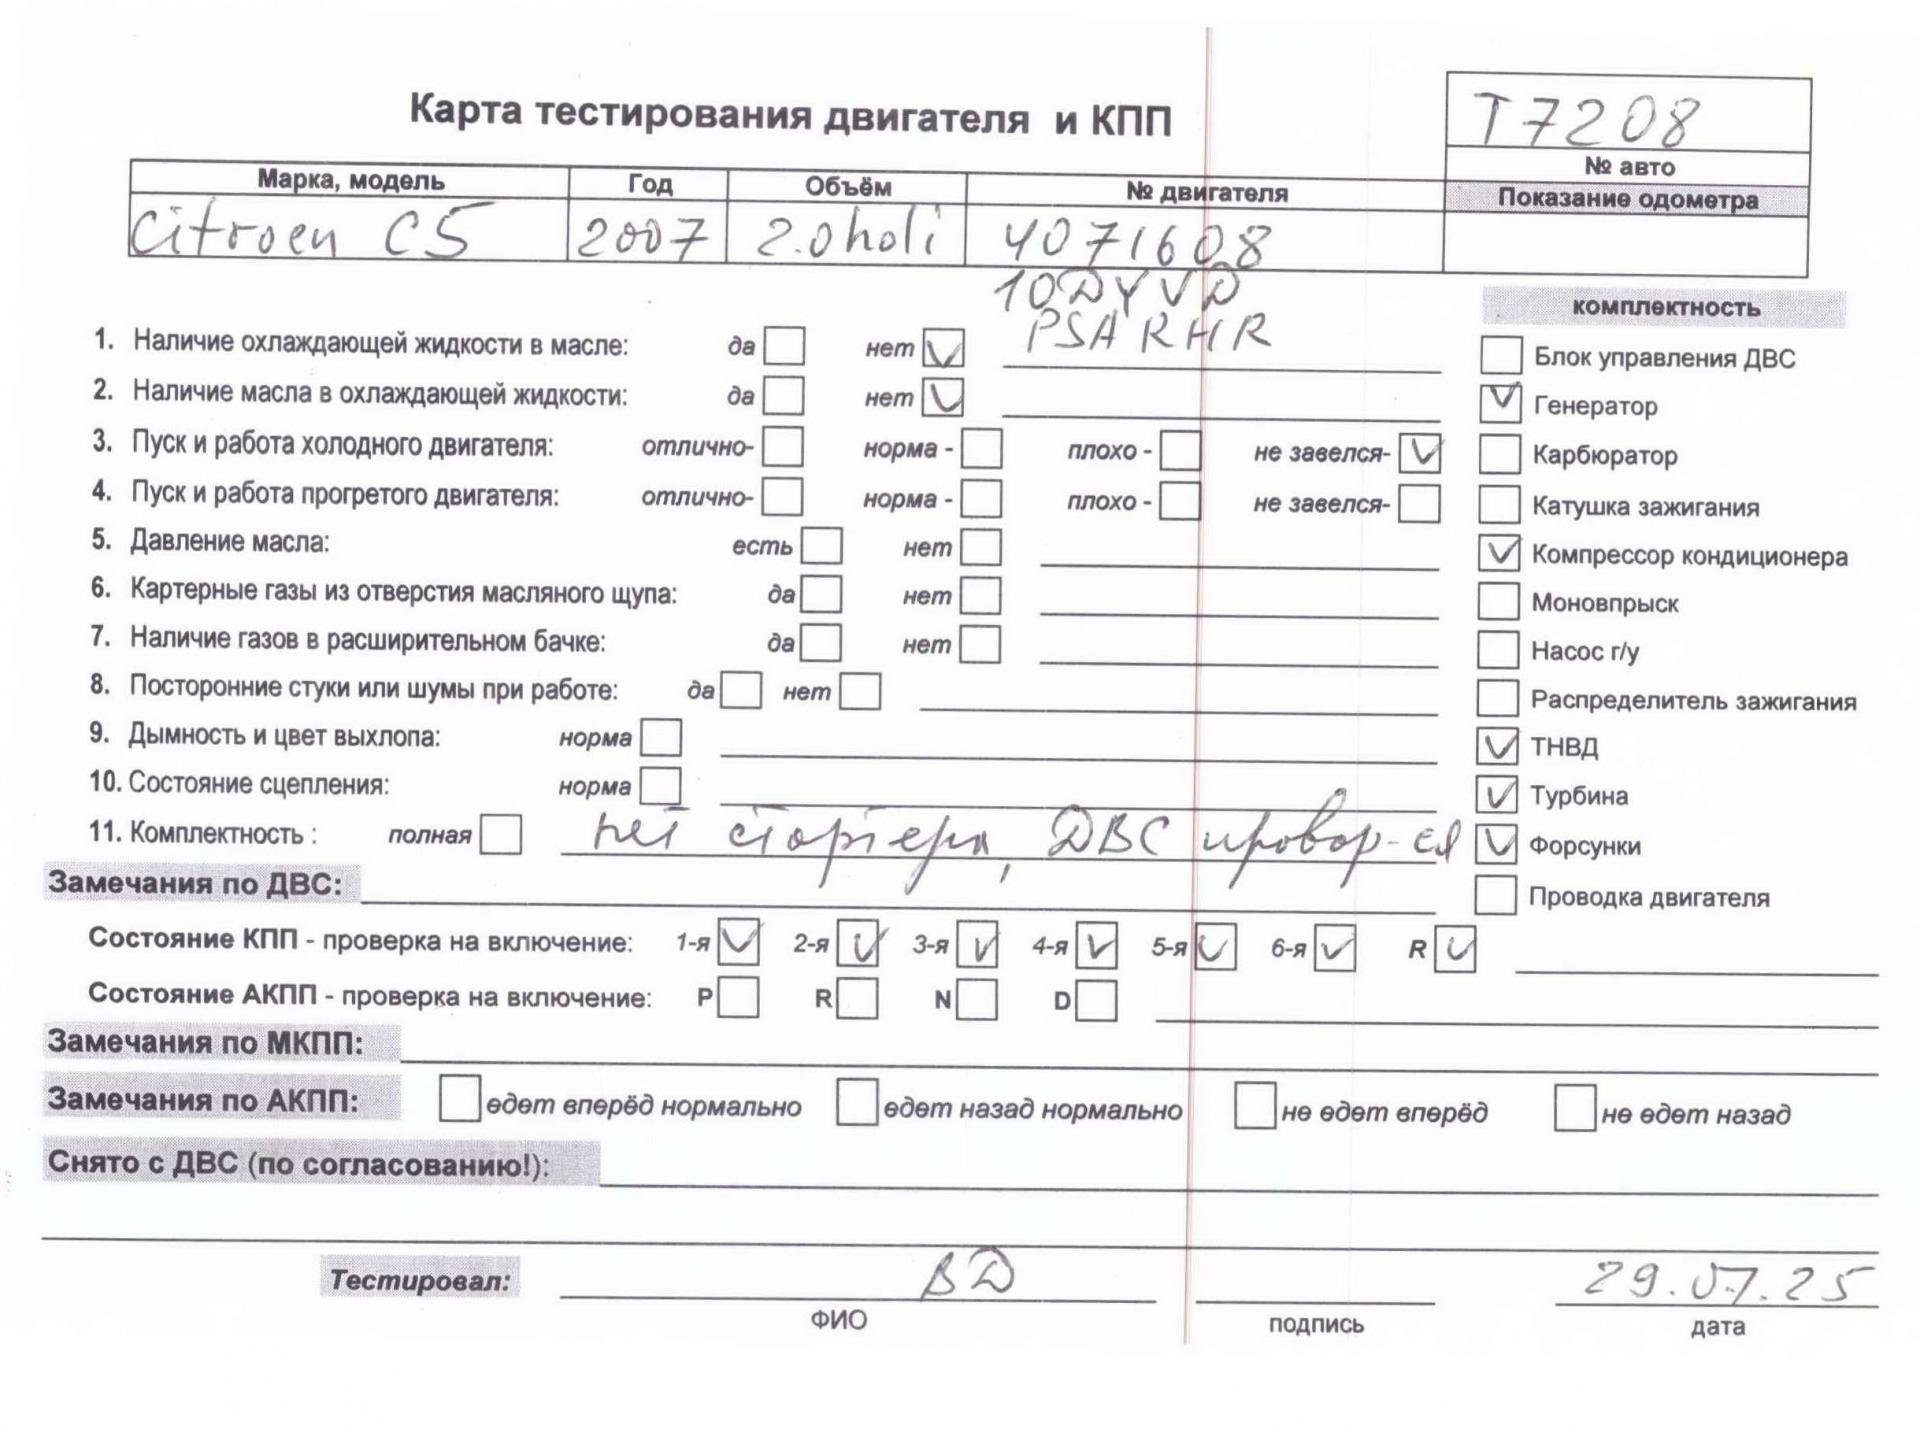 Карта тестирования двигателя и КПП
T7208
№ авто
Марка, модель Год Объём № двигателя Показание одометра
Citroen C5 2007 2.0 hdi 4071608
10DYVD
PSA RHR
комплектность
1. Наличие охлаждающей жидкости в масле: да нет
Блок управления ДВС
2. Наличие масла в охлаждающей жидкости: да нет
Генератор
3. Пуск и работа холодного двигателя: отлично- норма - плохо - не завелся-
Карбюратор
4. Пуск и работа прогретого двигателя: отлично- норма - плохо - не завелся-
Катушка зажигания
5. Давление масла: есть нет
Компрессор кондиционера
6. Картерные газы из отверстия масляного щупа: да нет
Моновпрыск
7. Наличие газов в расширительном бачке: да нет
Насос г/у
8. Посторонние стуки или шумы при работе: да нет
Распределитель зажигания
9. Дымность и цвет выхлопа: норма
ТНВД
10. Состояние сцепления: норма
Турбина
11. Комплектность : полная нет стартера, ДВС провор-ся
Форсунки
Замечания по ДВС:
Проводка двигателя
Состояние КПП - проверка на включение: 1-я 2-я 3-я 4-я 5-я 6-я R
Состояние АКПП - проверка на включение: P R N D
Замечания по МКПП:
Замечания по АКПП: едет вперёд нормально едет назад нормально не едет вперёд не едет назад
Снято с ДВС (по согласованию!):
Тестировал: ВД 29.07.25
ФИО подпись дата